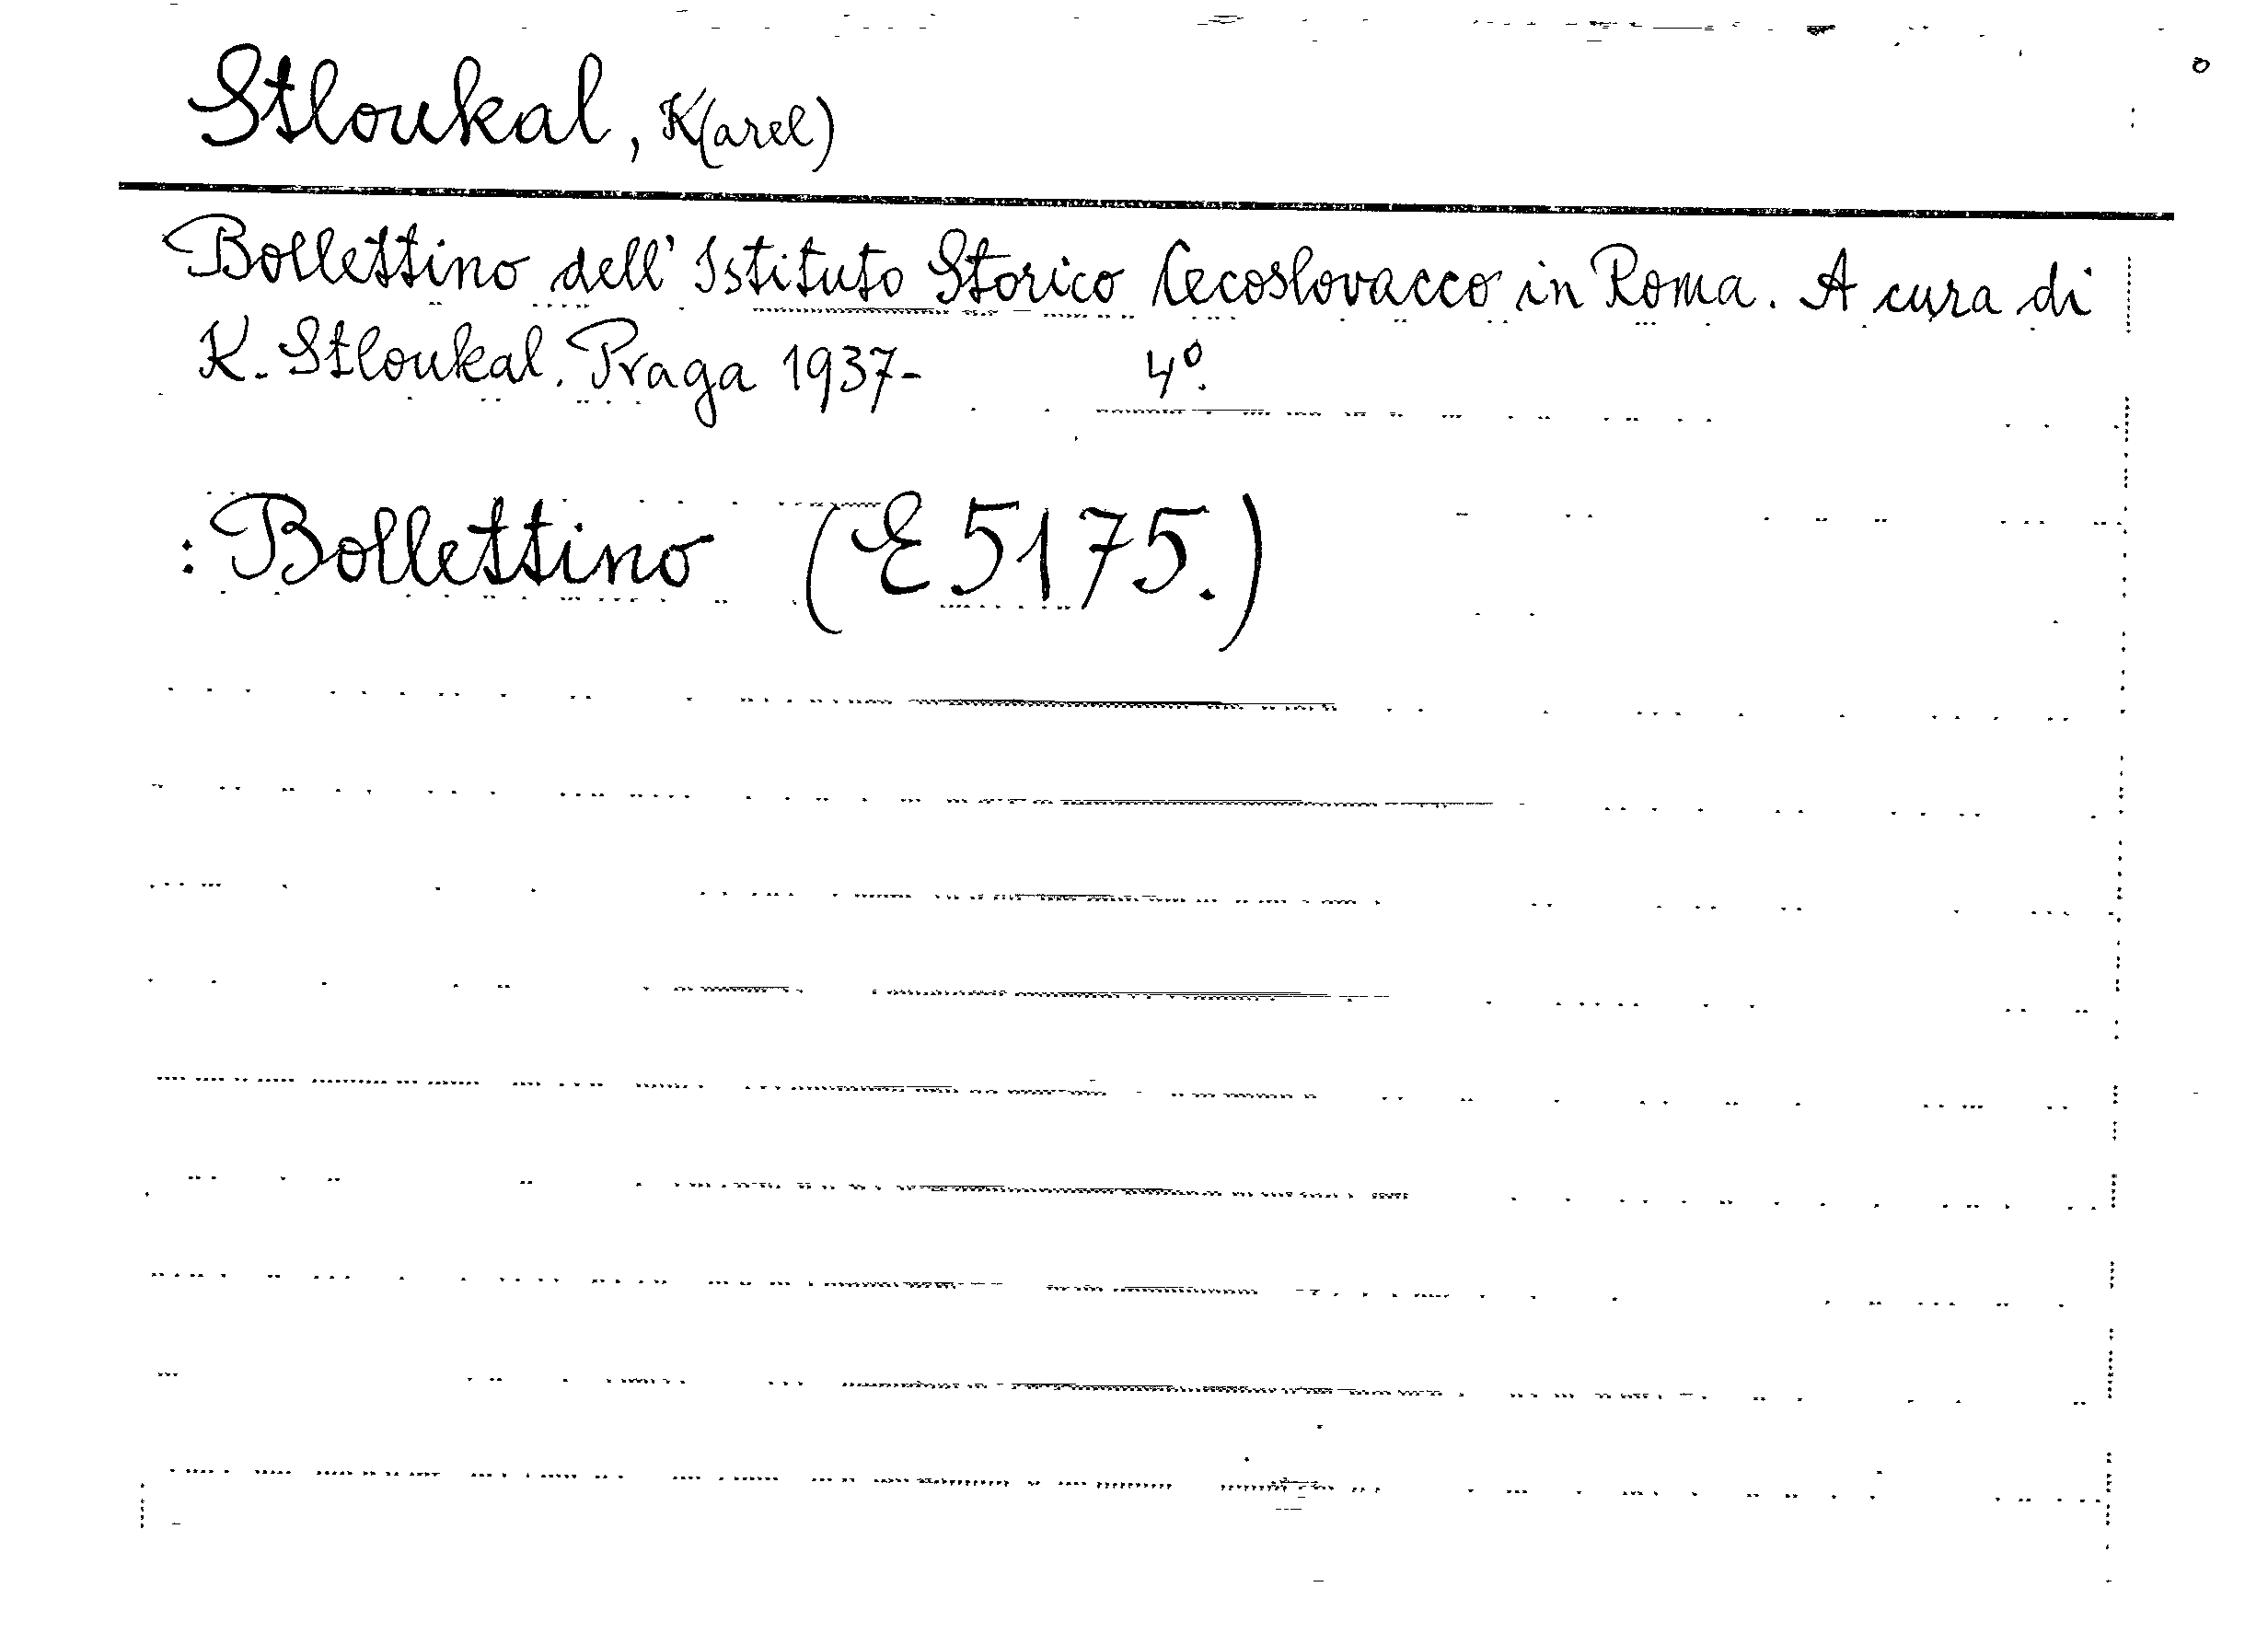 Stloukal, K(arel)
Bollettino dell' Istituto Storico Cecoslovacco in Roma. A cura di
K. Stloukal. Praga 1937- 4º.
: Bollettino (E 5175.)